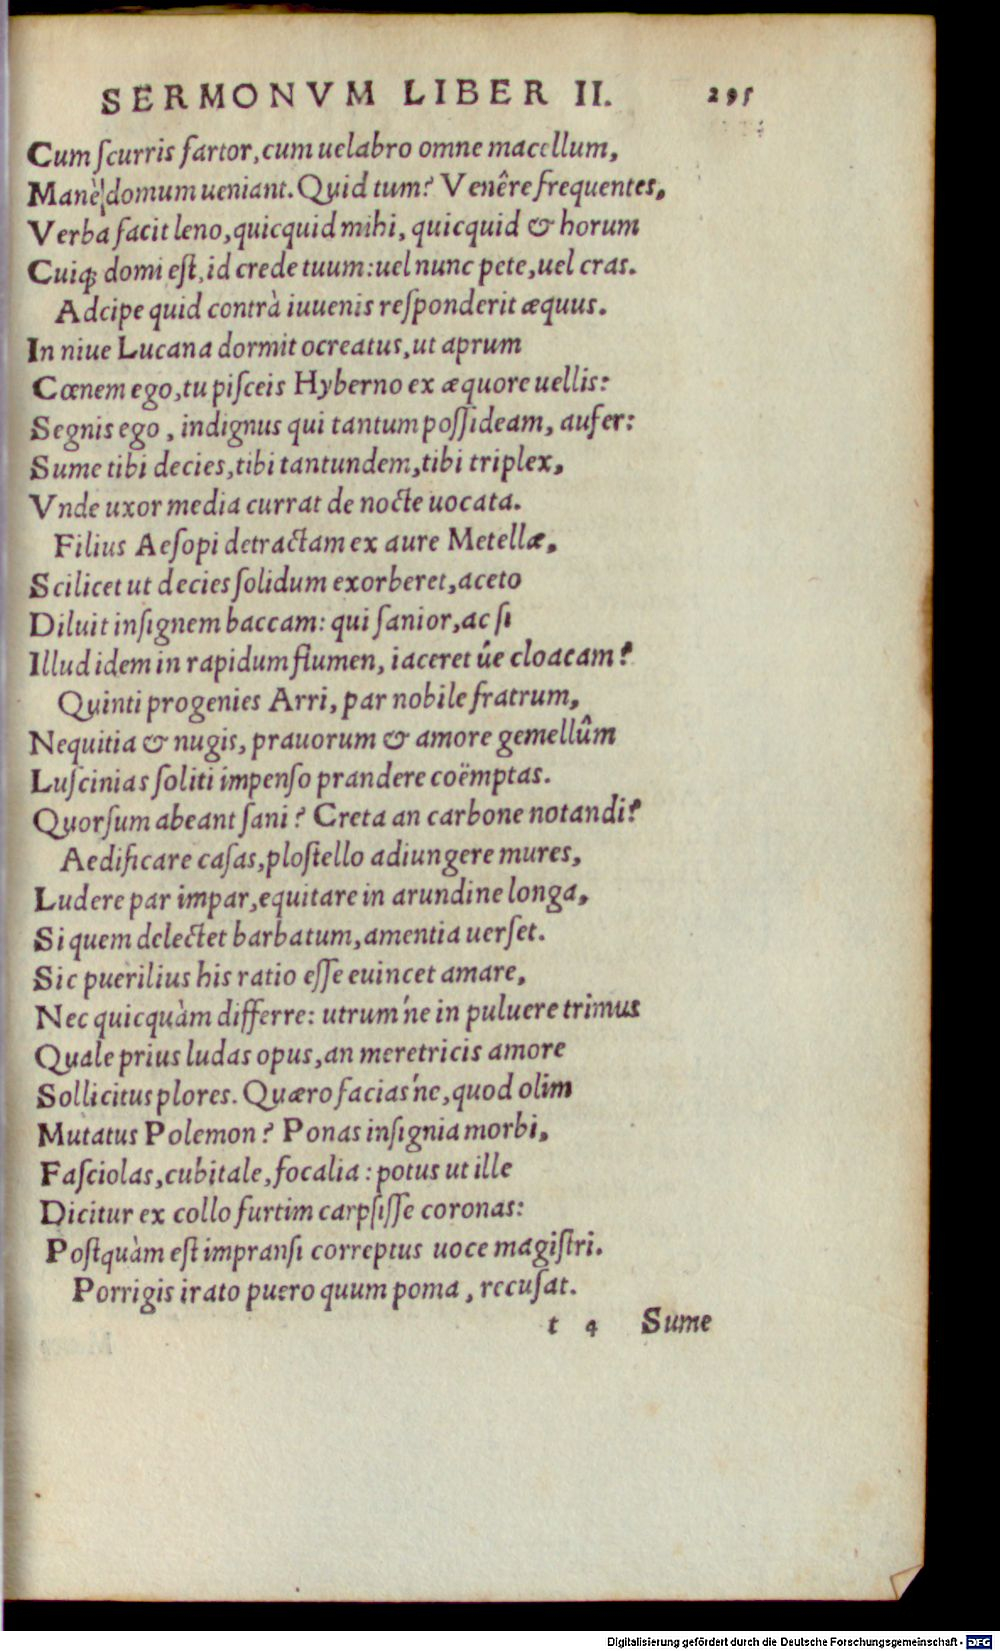 SERMONVM LIBER II. 295
Cum ſcurris fartor, cum uelabro omne macellum,
Manè domum ueniant. Quid tum? Venêre frequentes,
Verba facit leno, quicquid mihi, quicquid & horum
Cuiq; domi eſt, id crede tuum: uel nunc pete, uel cras.
Adcipe quid contrà iuuenis reſponderit æquus.
In niue Lucana dormit ocreatus, ut aprum
Cœnem ego, tu piſceis Hyberno ex æquore uellis:
Segnis ego, indignus qui tantum poſſideam, aufer:
Sume tibi decies, tibi tantundem, tibi triplex,
Vnde uxor media currat de nocte uocata.
Filius Aeſopi detractam ex aure Metellæ,
Scilicet ut decies ſolidum exorberet, aceto
Diluit inſignem baccam: qui ſanior, ac ſi
Illud idem in rapidum flumen, iaceret úe cloacam?
Quinti progenies Arri, par nobile fratrum,
Nequitia & nugis, prauorum & amore gemellûm
Luſcinias ſoliti impenſo prandere coëmptas.
Quorſum abeant ſani? Creta an carbone notandi?
Aedificare caſas, ploſtello adiungere mures,
Ludere par impar, equitare in arundine longa,
Si quem delectet barbatum, amentia uerſet.
Sic puerilius his ratio eſſe euincet amare,
Nec quicquàm differre: utrum'ne in puluere trimus
Quale prius ludas opus, an meretricis amore
Sollicitus plores. Quæro facias'ne, quod olim
Mutatus Polemon? Ponas inſignia morbi,
Faſciolas, cubitale, focalia: potus ut ille
Dicitur ex collo furtim carpſiſſe coronas:
Poſtquàm eſt impranſi correptus uoce magiſtri.
Porrigis irato puero quum poma, recuſat.
t 4 Sume
Digitalisierung gefördert durch die Deutsche Forschungsgemeinschaft - DFG